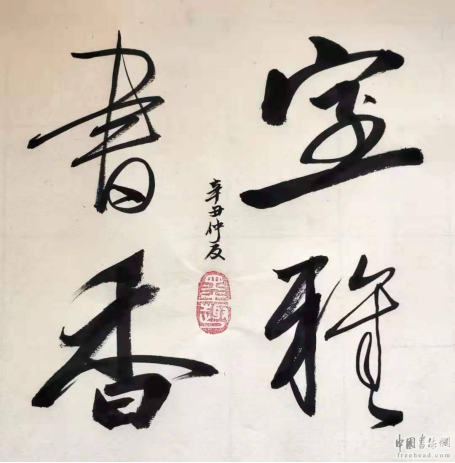 室雅
書香
辛丑仲夏
中國書法網
freehead.com